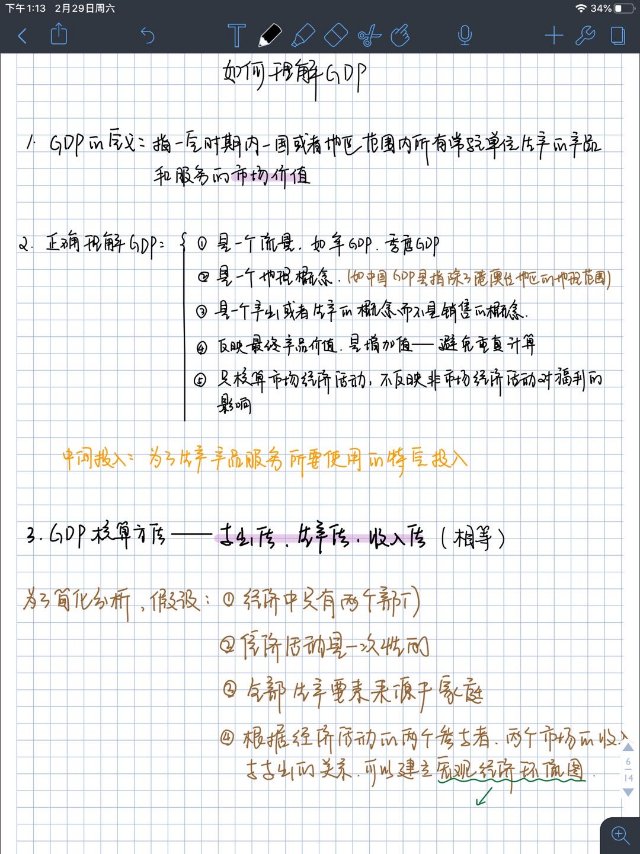 下午1:13 2月29日周六
34%
如何理解GDP
1. GDP的定义：指一定时期内一国或者地区范围内所有常驻单位生产的产品
和服务的市场价值
2. 正确理解GDP：
① 是一个流量，如年GDP、季度GDP
② 是一个地理概念.（如中国GDP是指除了港澳台地区的地理范围）
③ 是一个产出或者生产的概念而不是销售的概念.
④ 反映最终产品价值.是增加值——避免重复计算
⑤ 只核算市场经济活动，不反映非市场经济活动对福利的
影响
中间投入：为了生产产品服务所要使用的特定投入
3. GDP核算方法——支出法、生产法、收入法（相等）
为了简化分析，假设：① 经济中只有两个部门
② 经济活动是一次性的
③ 全部生产要素来源于家庭
④ 根据经济活动的两个参与者、两个市场的收入
与支出的关系，可以建立宏观经济环流图.
6
14